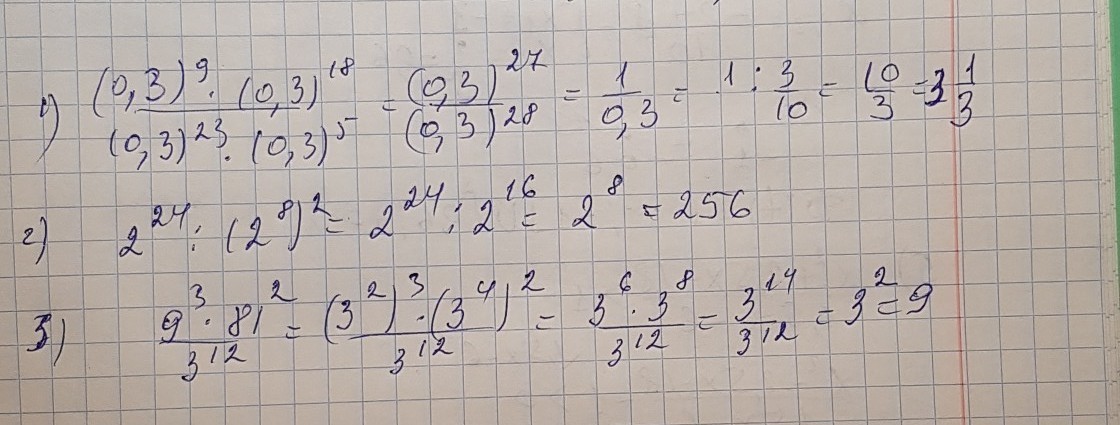 1) \frac{(0,3)^9 \cdot (0,3)^{18}}{(0,3)^{23} \cdot (0,3)^5} = \frac{(0,3)^{27}}{(0,3)^{28}} = \frac{1}{0,3} = 1 : \frac{3}{10} = \frac{10}{3} = 3\frac{1}{3}
2) 2^{24} : (2^8)^2 = 2^{24} : 2^{16} = 2^8 = 256
3) \frac{9^3 \cdot 81^2}{3^{12}} = \frac{(3^2)^3 \cdot (3^4)^2}{3^{12}} = \frac{3^6 \cdot 3^8}{3^{12}} = \frac{3^{14}}{3^{12}} = 3^2 = 9